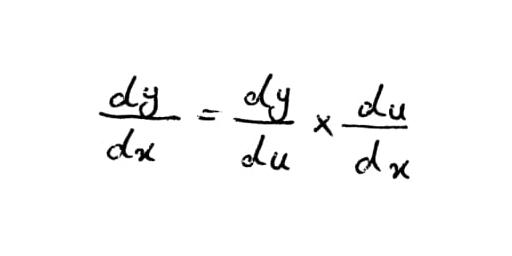 dy/dx = dy/du × du/dx